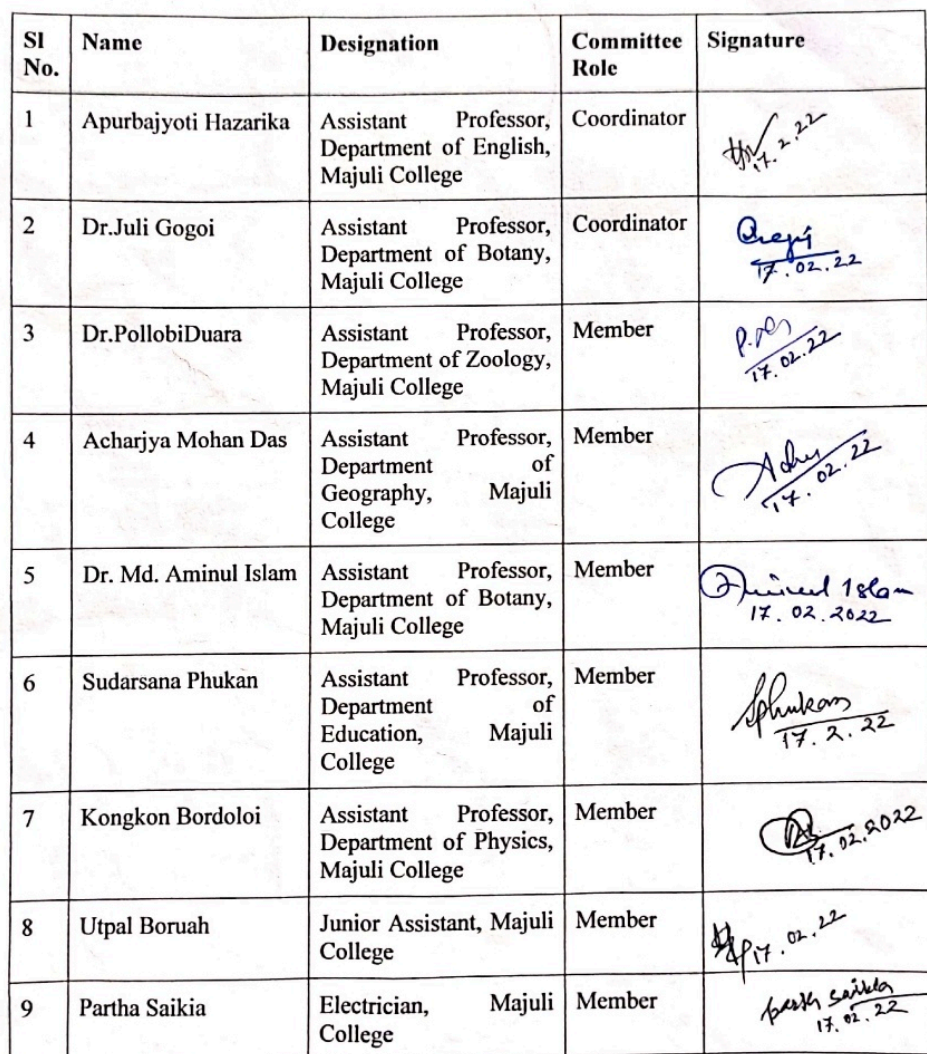 Sl No. Name Designation Committee Role Signature
1 Apurbajyoti Hazarika Assistant Professor, Department of English, Majuli College Coordinator 17.2.22
2 Dr.Juli Gogoi Assistant Professor, Department of Botany, Majuli College Coordinator 17.02.22
3 Dr.PollobiDuara Assistant Professor, Department of Zoology, Majuli College Member 17.02.22
4 Acharjya Mohan Das Assistant Professor, Department of Geography, Majuli College Member 17.02.22
5 Dr. Md. Aminul Islam Assistant Professor, Department of Botany, Majuli College Member Aminul Islam 17.02.2022
6 Sudarsana Phukan Assistant Professor, Department of Education, Majuli College Member SPhukan 17.2.22
7 Kongkon Bordoloi Assistant Professor, Department of Physics, Majuli College Member 17.02.2022
8 Utpal Boruah Junior Assistant, Majuli College Member 17.02.22
9 Partha Saikia Electrician, Majuli College Member Saikia 17.02.22